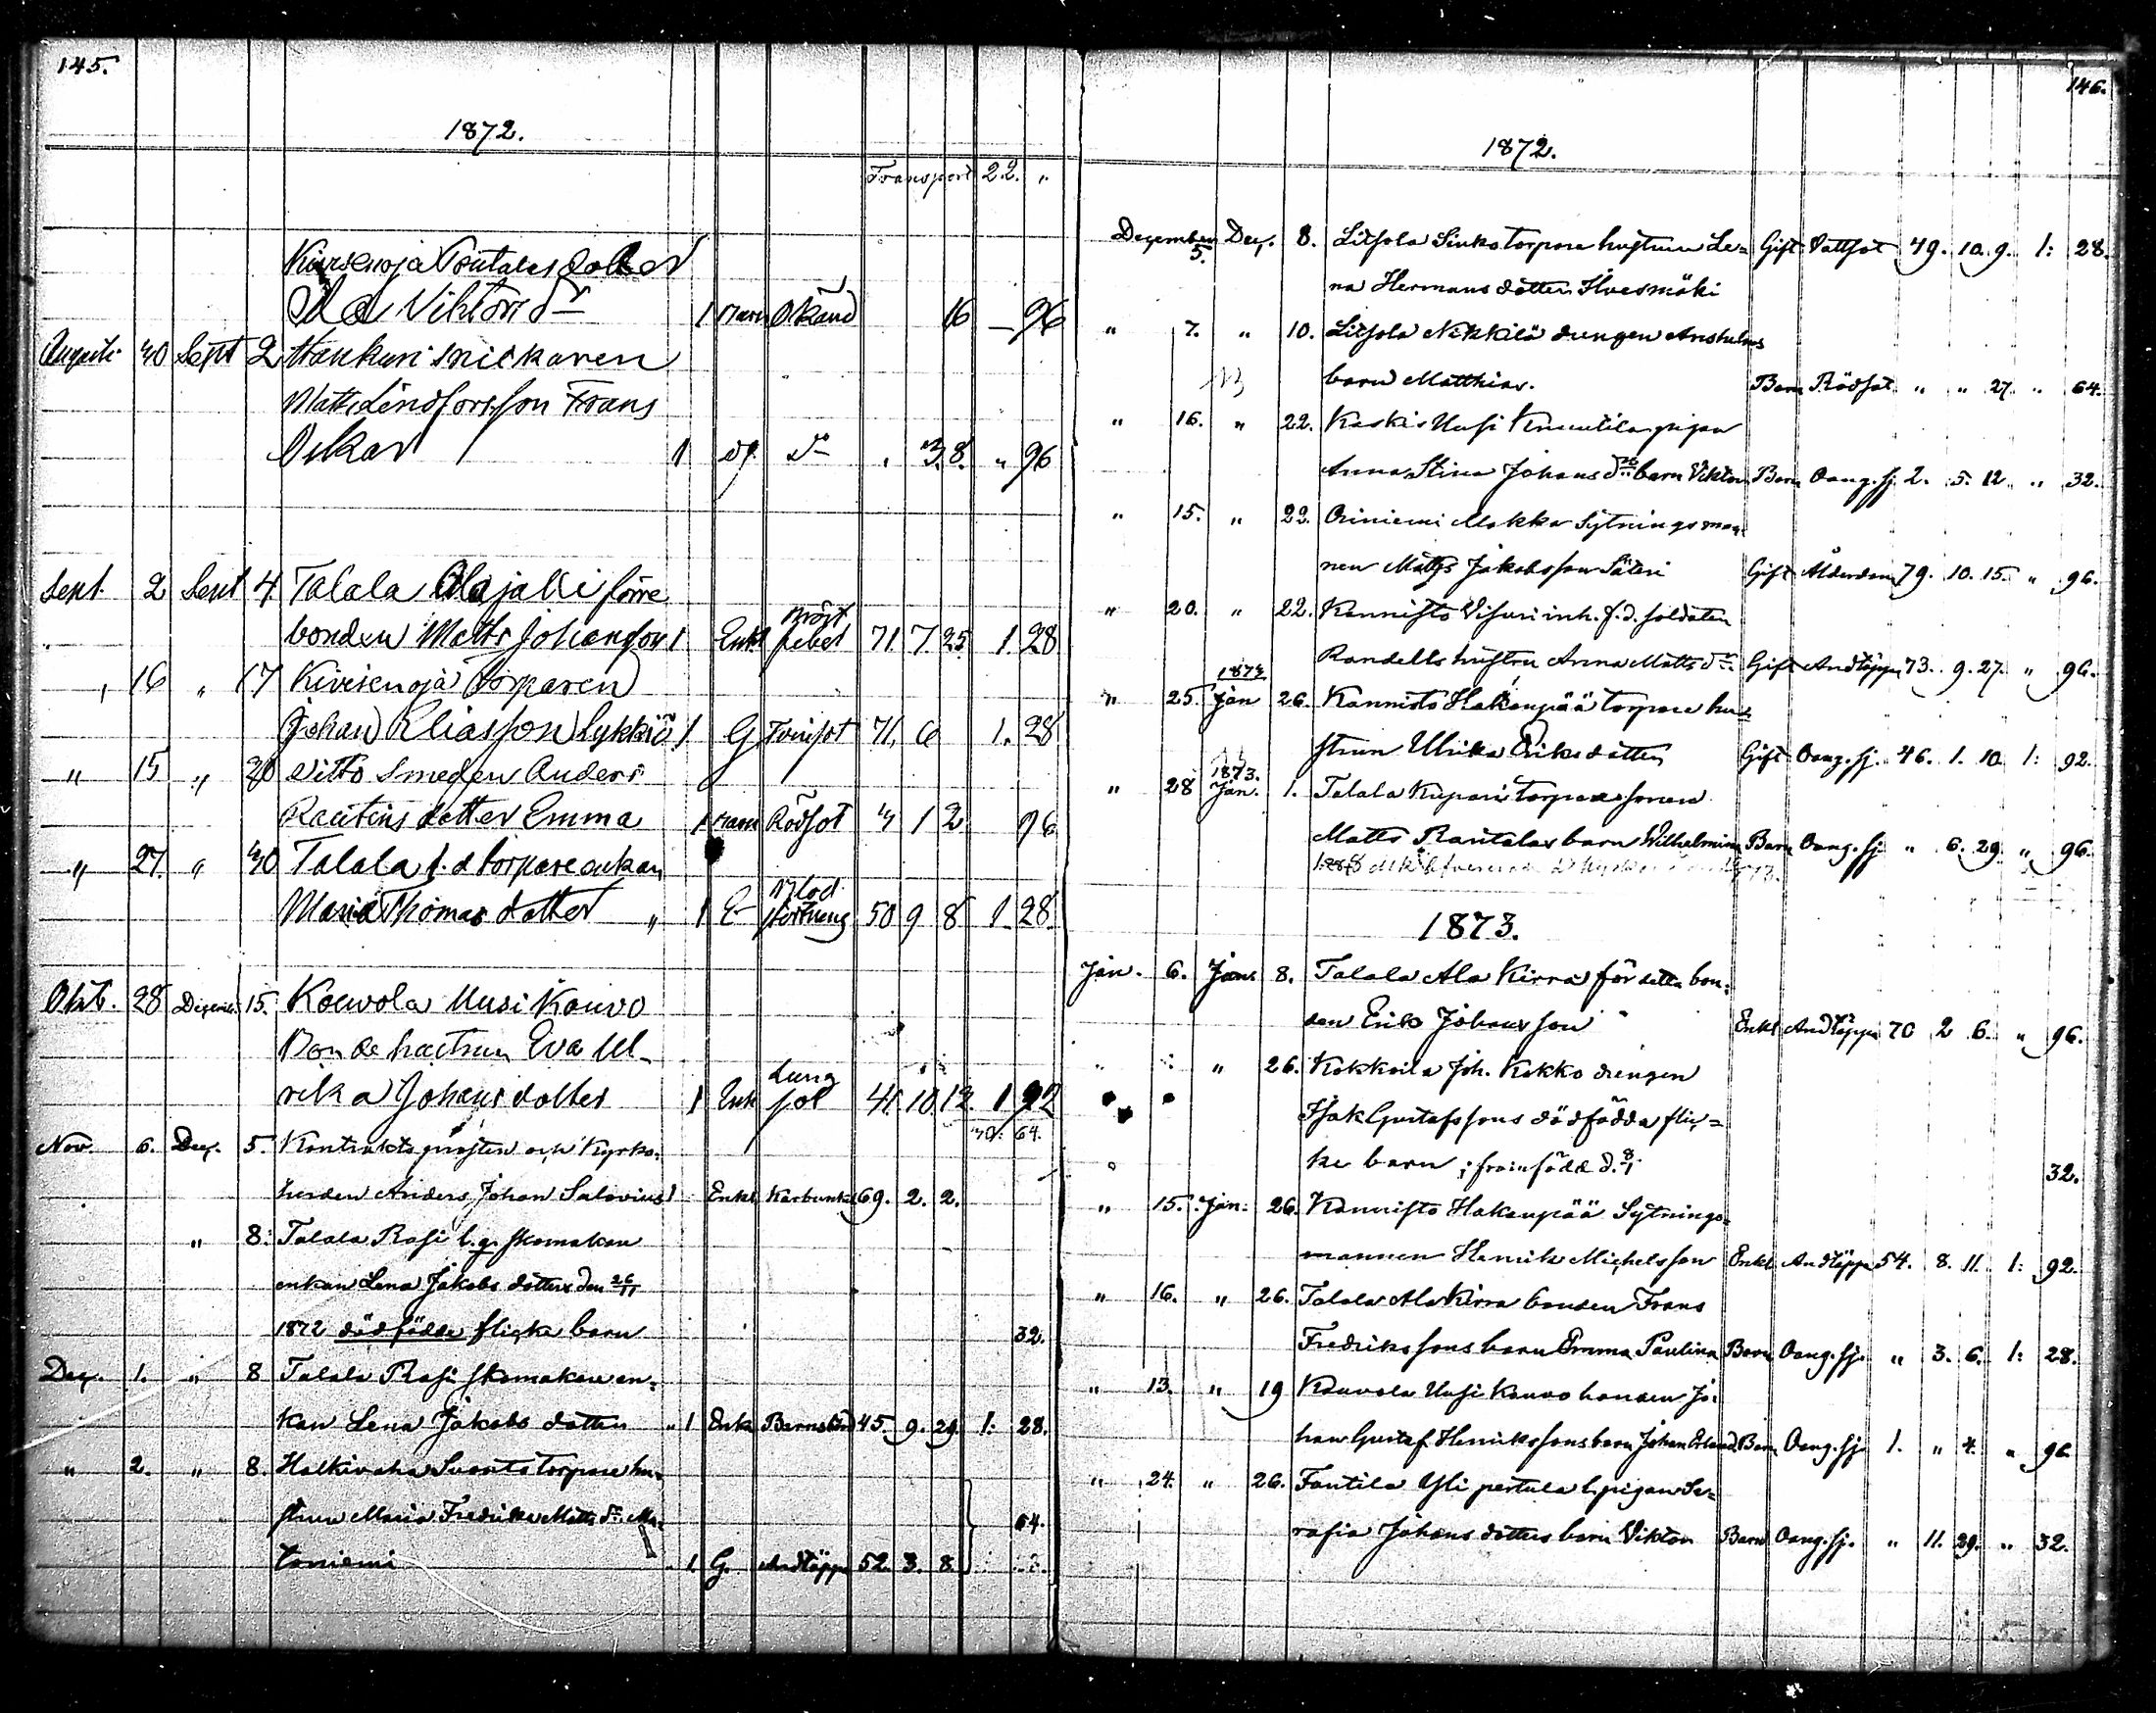 145.
1872.
Transport 22. "
dotter
Ida Viktors dr 1 Barn Okänd 16 – 96
Augusti 30 Sept 2 Haukuri snickaren
Matts Lindforsson Frans
Oskar 1 do do " 3. 8. " 96
Sept. 2 Sept 4 Talala Alajalli förre
bonden Matts Johansson 1 Enkl Bröst feber 71. 7. 25. 1. 28
" 16 " 17 Kivisenoja Torparen
Johan Eliasson Lykkiö 1 G Tvinsot 71. 6 1. 28
" 15 " 20 Ditto Smeden Anders
Rautins dotter Emma 1 Barn Rödsot 4 1 2 96
" 27. " 30 Talala f. d torpare enkan
Maria Thomas dotter " 1 E Blod störtning 50 9 8 1. 28.
Oktb. 28 Decemb. 15. Kouvola Uusi Kouvo
Bonde hustrun Eva Ul-
rika Johans dotter 1 Enk Lung sot 41. 10 12. 1 92
30: 64.
Nov. 6. Dec. 5. Kontrakts prosten och Kyrko-
herden Anders Johan Salovius 1 Enkl Karbunkel 69. 2. 2.
" 8. Talala Rasi l. g. skomakare
enkan Lena Jakobs dotters den 26/11
1872 dödfödde flicke barn 32.
Dec. 1. " 8 Talala Rasi skomakare en-
kan Lena Jakobs dotter " 1 Enka Barnsbörd 45. 9. 29. 1: 28.
" 2. " 8. Halkivaha Suonto torpare hu-
strun Maria Fredrika Matts dr 64.
toniemi 1. G. Andtäppa 52. 3. 8.
146.
1872.
December 5. Dec. 8. Litsola Sinko torpare hustrun Le= Gift Vattsot 49. 10. 9. 1: 28.
na Hermans dotter Ilvesmäki
" 7. " 10. Litsola Nikkilä drengen Anshelms
barn Matthias. Barn Rödsot " " 27. " 64.
" 16. " 22. Keskis Uusi pigan
Anna Stina Johans drs barn Viktor Barn Oang. sj. 2. 5. 12. " 32.
" 15. " 22. Oriniemi Mokka Sytningsman-
nen Matts Jakobsson Säteri Gift Ålderdom 79. 10. 15. " 96.
" 20. " 22. Kannisto Visuri inh. f. d. soldaten
Randells hustru Anna Matts dr Gift Andtäppa 73. 9. 27. " 96.
" 25. 1873 Jan 26. Kannisto Hakanpää torpare hu-
strun Ulrika Eriks dotter Gift Oang. sj. 46. 1. 10. 1: 92.
" 28 1873. Jan. 1. Talala Kupari torpare sonen
Matts Rautalas barn Wilhelmina Barn Oang. sj. " 6. 29. " 96.
1873.
Jan. 6. Jan. 8. Talala Ala Kirra för detta bon-
den Erik Johansson Enkl Andtäppa 70 2 6. " 96.
" " " 26. Kokkoila Joh. Kokko drengen
Isak Gustafssons dödfödda flic=
ke barn; framfödd d. 8/1 32.
" 15. Jan: 26. Kannisto Hakanpää Sytnings-
mannen Henrik Michelsson Enkl Andtäppa 54. 8. 11. 1: 92.
" 16. " 26. Talala Ala Kirra bonden Frans
Fredrikssons barn Emma Paulina Barn Oang. sj. " 3. 6. 1: 28.
" 13. " 19 Kouvola Uusi Kouvo bonden Jo-
han Gustaf Henrikssons barn Johan Erland Barn Oang. sj. 1. " 4. " 96
" 24. " 26. Fantila Yli pertula l. pigan Se=
rafia Johans dotters barn Viktor Barn Oang. sj. " 11. 29. " 32.